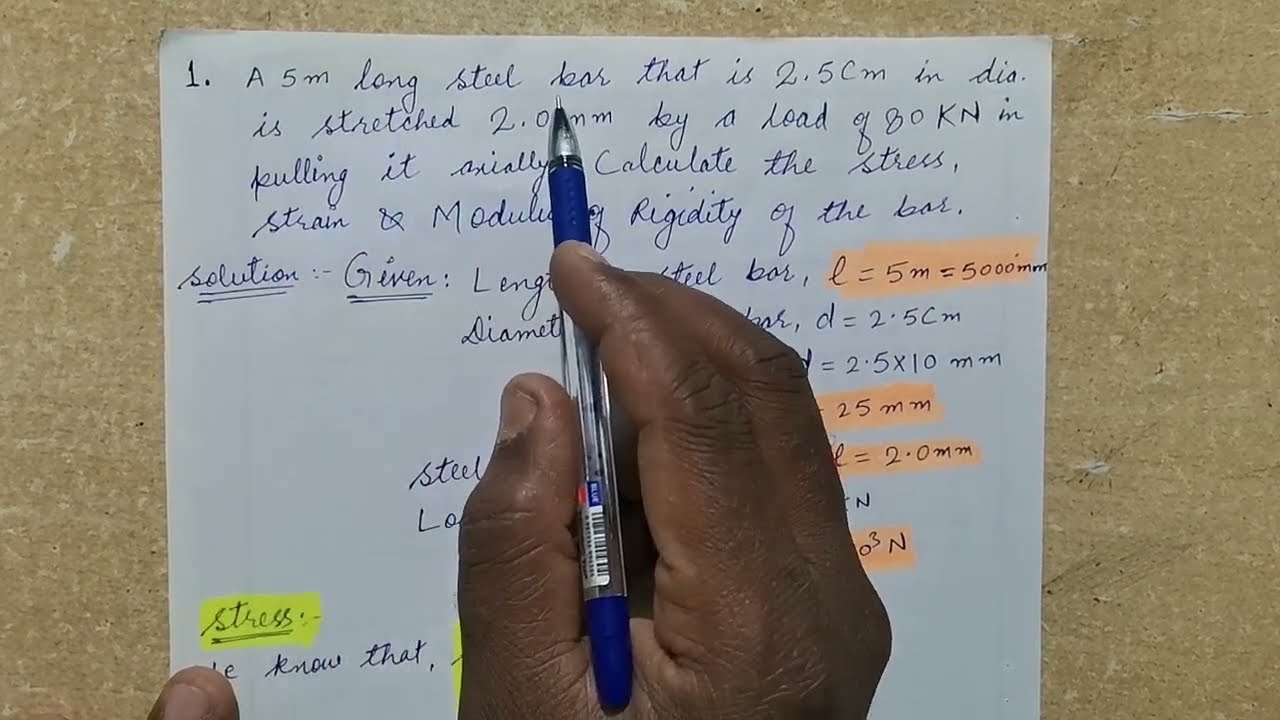 1. A 5m long steel bar that is 2.5Cm in dia.
is stretched 2.0mm by a load of 80 KN in
pulling it axially. Calculate the stress,
strain & Modulus of Rigidity of the bar.
Solution :- Given: Length steel bar, l = 5m = 5000mm
bar, d = 2.5Cm
d = 2.5X10 mm
25 mm
Steel l = 2.0mm
N
N
Stress:-
know that,
BLUE